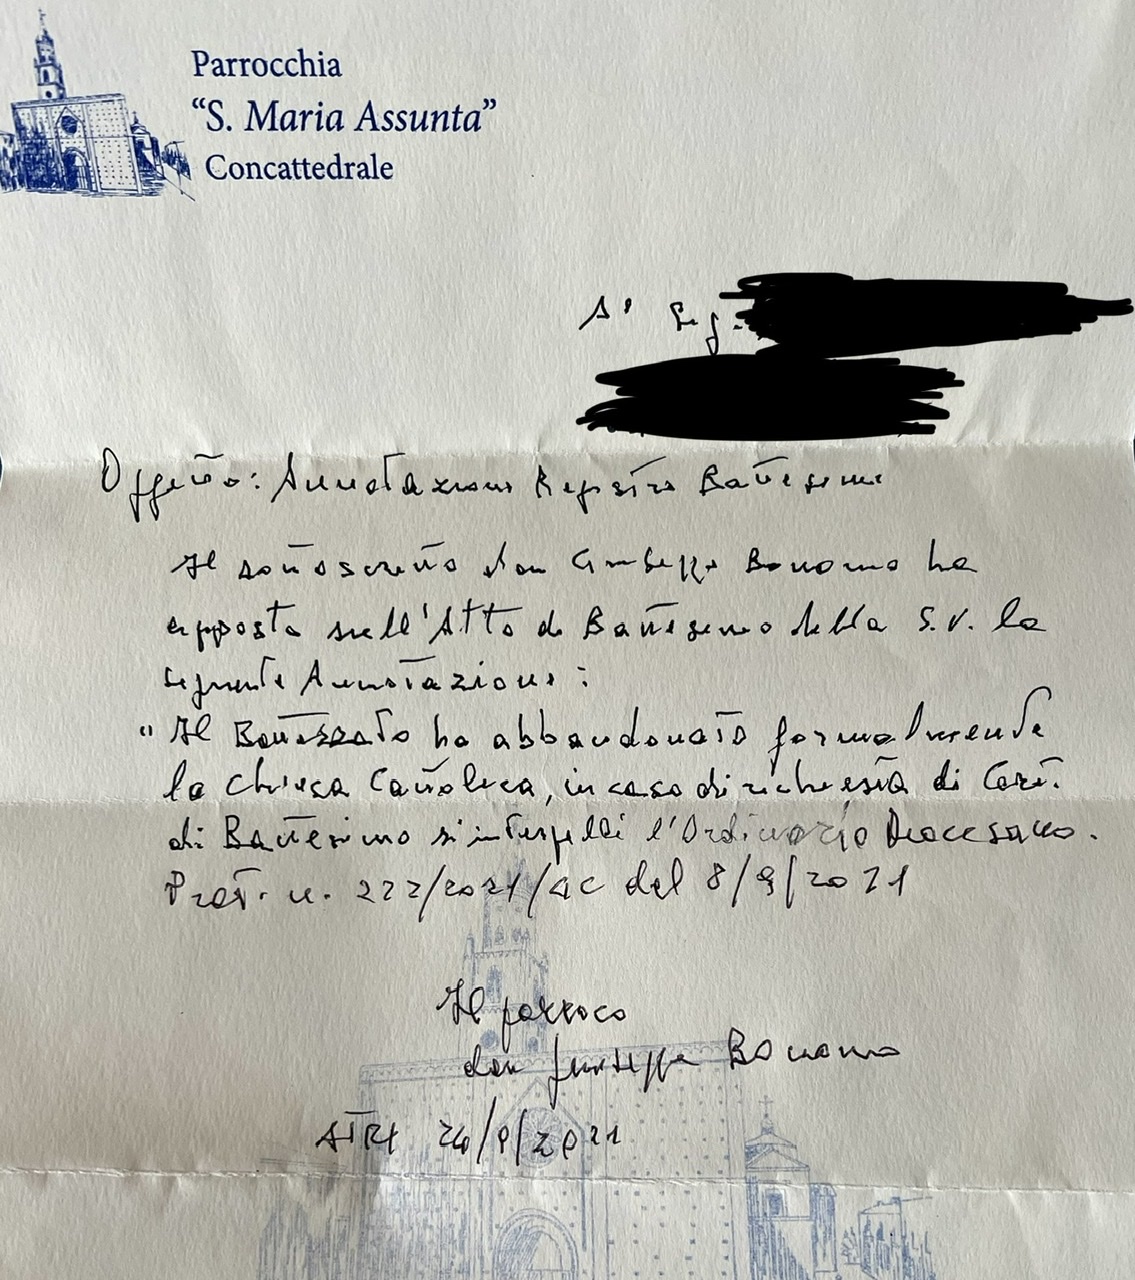 Parrocchia
“S. Maria Assunta”
Concattedrale
A' Sig.
Oggetto: Annotazione Registro Battesimi
Il sottoscritto don Giuseppe Bonomo ha
apposto sull'Atto di Battesimo della S.V. la
seguente Annotazione:
"Il Battezzato ha abbandonato formalmente
la Chiesa Cattolica, in caso di richiesta di Cert.
di Battesimo si interpelli l'Ordinario Diocesano.
Prot. n. 222/2021/AC del 8/9/2021
Il parroco
don Giuseppe Bonomo
ATRI 24/9/2021